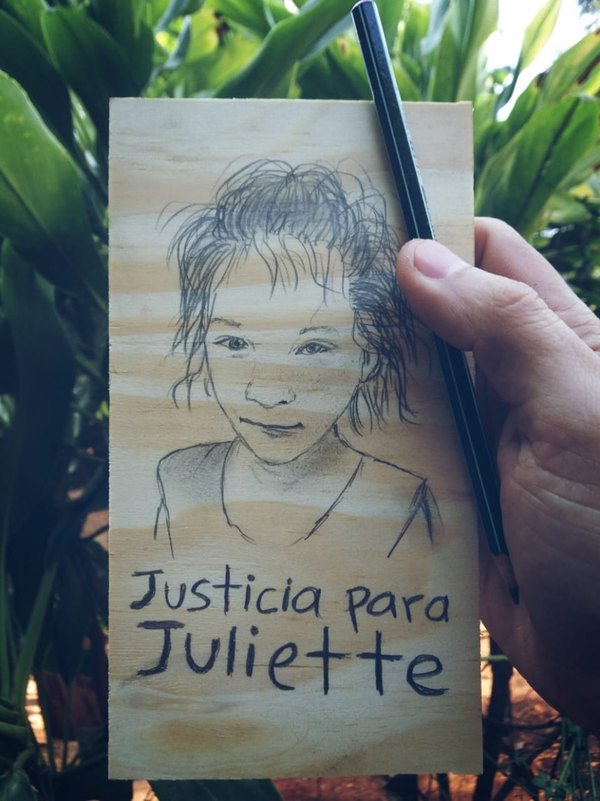 Justicia para
Juliette